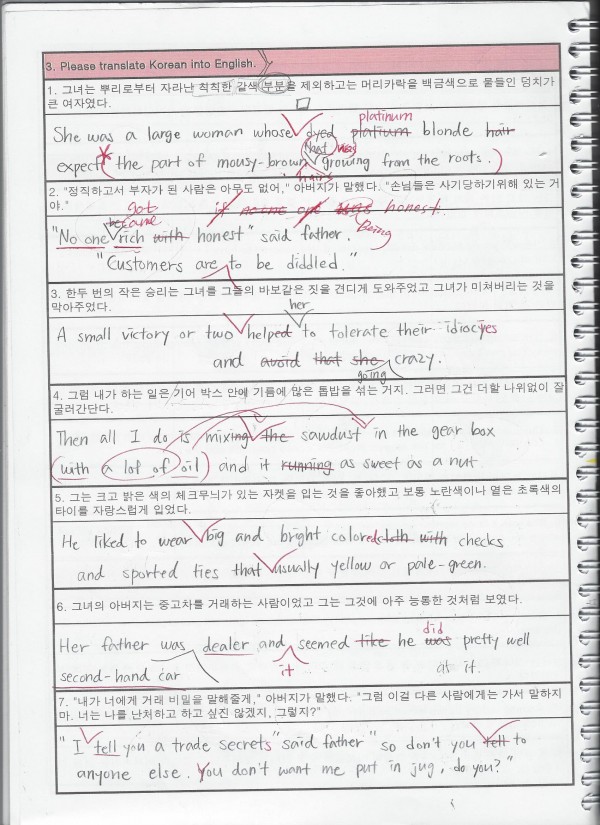 3. Please translate Korean into English.
1. 그녀는 뿌리로부터 자라난 칙칙한 갈색 부분을 제외하고는 머리카락을 백금색으로 물들인 덩치가
큰 여자였다.
platinum
She was a large woman whose dyed platium blonde hair
that was
expect the part of mousy-brown growing from the roots.)
hairs
2. "정직하고서 부자가 된 사람은 아무도 없어," 아버지가 말했다. "손님들은 사기당하기위해 있는 거
야."
got if no one honest.
became
"No one rich with honest" said father. Being
"Customers are to be diddled."
3. 한두 번의 작은 승리는 그녀를 그들의 바보같은 짓을 견디게 도와주었고 그녀가 미쳐버리는 것을
막아주었다.
her
A small victory or two helped to tolerate their idiocyes
and avoid that she crazy.
going
4. 그럼 내가 하는 일은 기어 박스 안에 기름에 많은 톱밥을 섞는 거지. 그러면 그건 더할 나위없이 잘
굴러간단다.
Then all I do is mixing the sawdust in the gear box
(with a lot of oil) and it running as sweet as a nut
5. 그는 크고 밝은 색의 체크무늬가 있는 자켓을 입는 것을 좋아했고 보통 노란색이나 옅은 초록색의
타이를 자랑스럽게 입었다.
He liked to wear big and bright colored cloth with checks
and sported ties that usually yellow or pale-green.
6. 그녀의 아버지는 중고차를 거래하는 사람이었고 그는 그것에 아주 능통한 것처럼 보였다.
did
Her father was dealer and seemed like he was pretty well
second-hand car it at it.
7. "내가 너에게 거래 비밀을 말해줄게," 아버지가 말했다. "그럼 이걸 다른 사람에게는 가서 말하지
마. 너는 나를 난처하고 하고 싶진 않겠지, 그렇지?"
"I tell you a trade secrets" said father "so don't you tell to
anyone else. You don't want me put in jug, do you?"